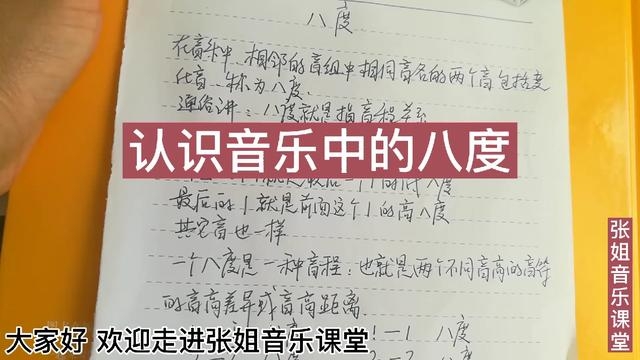 八度
在音列中,相邻的音组中相同音名的两个音包括变
化音,称为八度.
通俗讲:八度就是指音程关系
认识音乐中的八度
最后的1就是前面这个1的高八度
其它音也一样
一个八度是一种音程:也就是两个不同音高的音符
的音高差异或音高距离.
1—1 八度
张姐音乐课堂
大家好 欢迎走进张姐音乐课堂